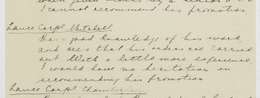 I cannot recommend his promotion
Lance Corpl Mitchell
Has good knowledge of his work
and sees that his orders are carried
out. With a little more experience
I would have no hesitation in
recommending his promotion
Lance Corpl